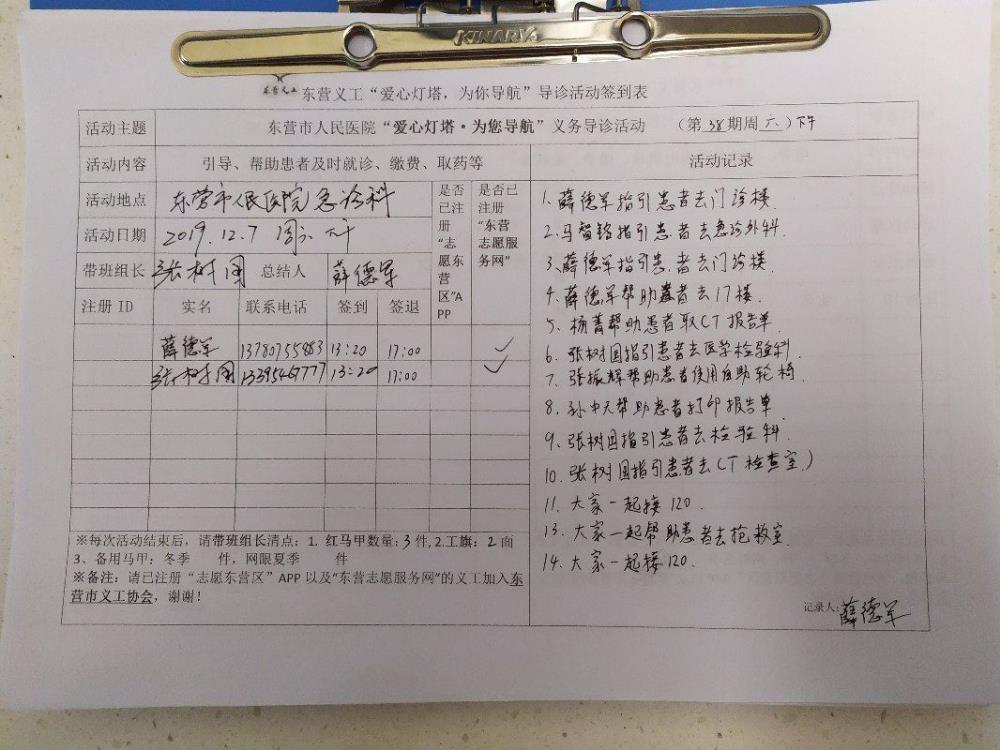 KINARY
东营义工
东营义工“爱心灯塔，为你导航”导诊活动签到表
活动主题 东营市人民医院“爱心灯塔·为您导航”义务导诊活动 （第38期周六）下午
活动内容 引导、帮助患者及时就诊、缴费、取药等
活动地点 东营市人民医院急诊科
是否已注册“志愿东营区”APP
是否已注册“东营志愿服务网”
活动日期 2019.12.7 周六 下午
带班组长 张树国 总结人 薛德军
注册 ID 实名 联系电话 签到 签退
薛德军 13780755883 13:20 17:00 ✓
张树国 13395467777 13:20 17:00 ✓
※每次活动结束后，请带班组长清点：1. 红马甲数量：3件，2.工旗：2面
3、备用马甲：冬季 件，网眼夏季 件
※备注：请已注册“志愿东营区”APP 以及“东营志愿服务网”的义工加入东
营市义工协会，谢谢！
活动记录
1、薛德军指引患者去门诊楼.
2.马智铭指引患者去急诊外科.
3.薛德军指引患者去门诊楼.
4.薛德军帮助患者去17楼.
5、杨菁帮助患者取CT报告单.
6.张树国指引患者去医学检验科.
7.张振辉帮助患者使用自助轮椅
8.孙中天帮助患者打印报告单.
9.张树国指引患者去检验科.
10.张树国指引患者去CT检查室）
11.大家一起接120.
13.大家一起帮助患者去抢救室.
14.大家一起接120.
记录人：薛德军